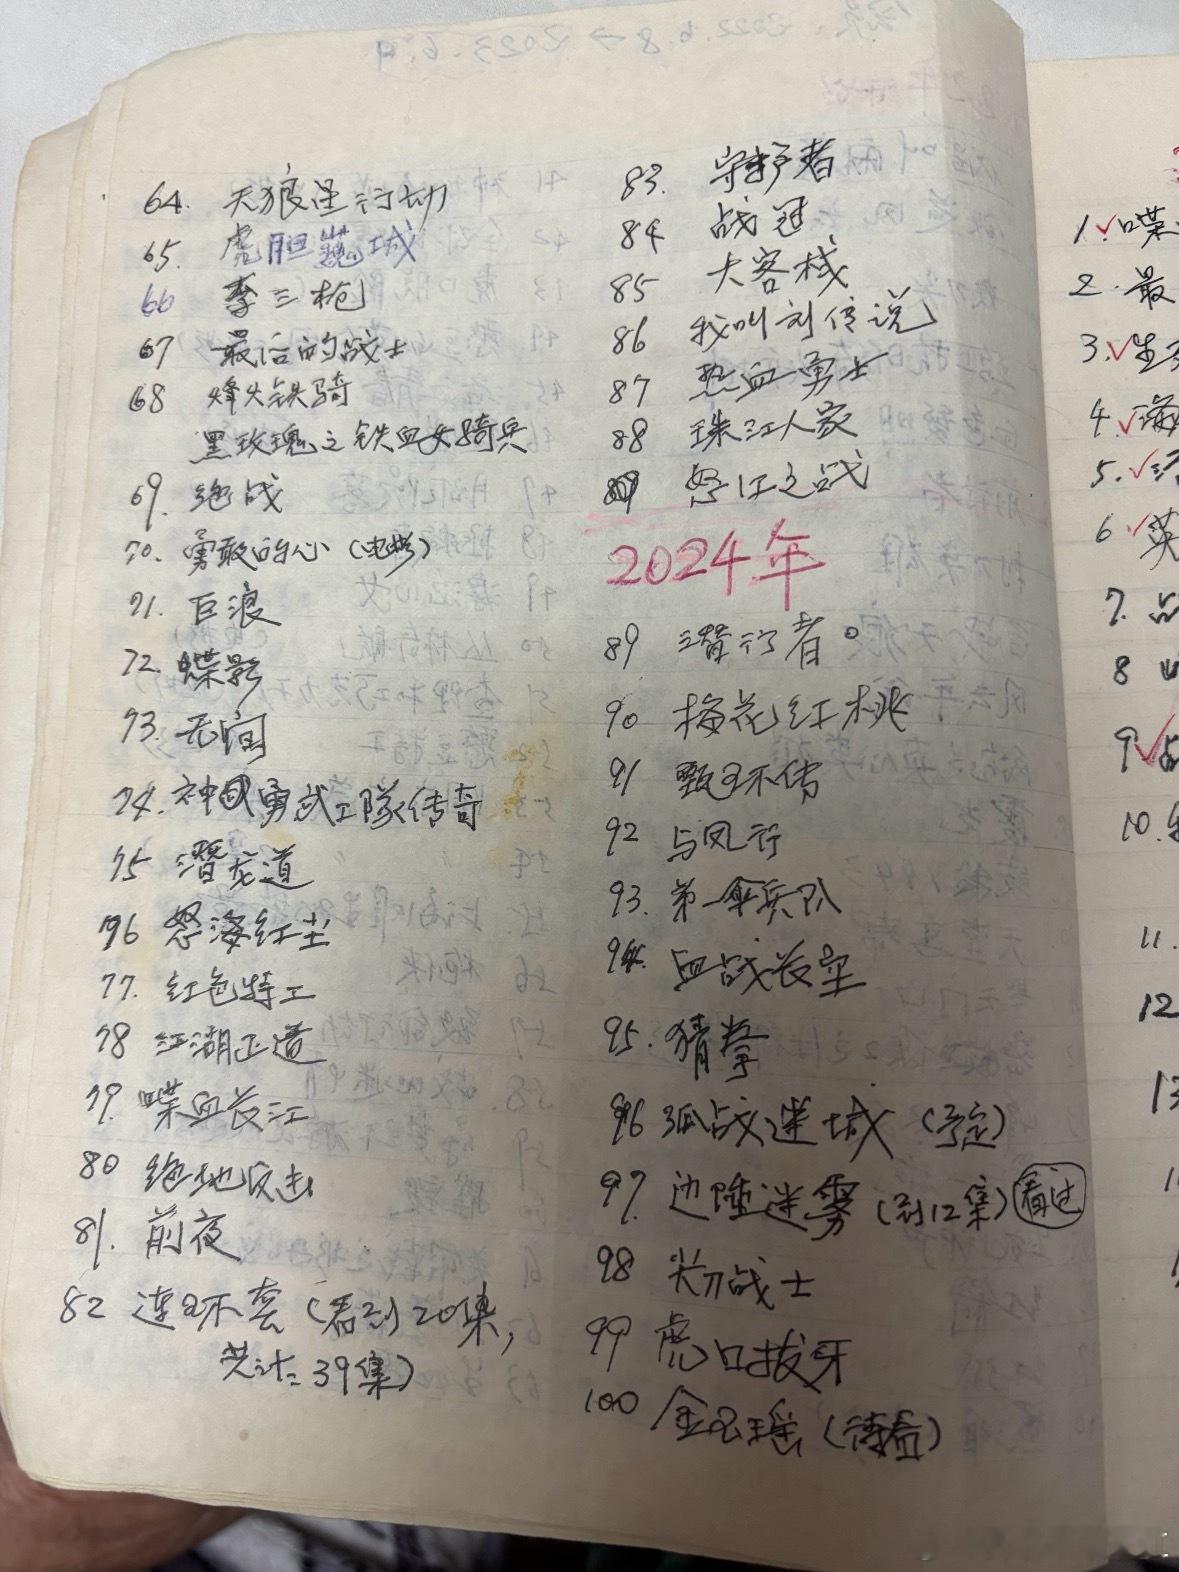 64. 天狼星行动
65. 虎胆巍城
66 李三枪
67 最后的战士
68 烽火铁骑
黑玫瑰之铁血女骑兵
69. 绝战
70. 勇敢的心（电影）
71. 巨浪
72. 蝶影
73. 无间
74. 神勇武工隊传奇
75 潜龙道
76 怒海红尘
77. 红色特工
78 江湖正道
79. 喋血长江
80 绝地反击
81. 前夜
82 连环套（看到20集，
共计：39集）
83. 守护者
84 战冠
85 大客栈
86 我叫刘传说
87 热血勇士
88 珠江人家
89 怒江之战
2024年
89 潜行者。
90 梅花红桃
91 甄环传
92 与凤行
93. 第一伞兵队
94. 血战长空
95. 猜拳
96 孤战迷城（予定）
97. 边陲迷雾（到12集）看过
98 尖刀战士
99 虎口拔牙
100 金玉瑶（待看）
1. 喋
2. 最
3. 生
4. 海
5.
6 英
7.
8
9
10.
11.
12